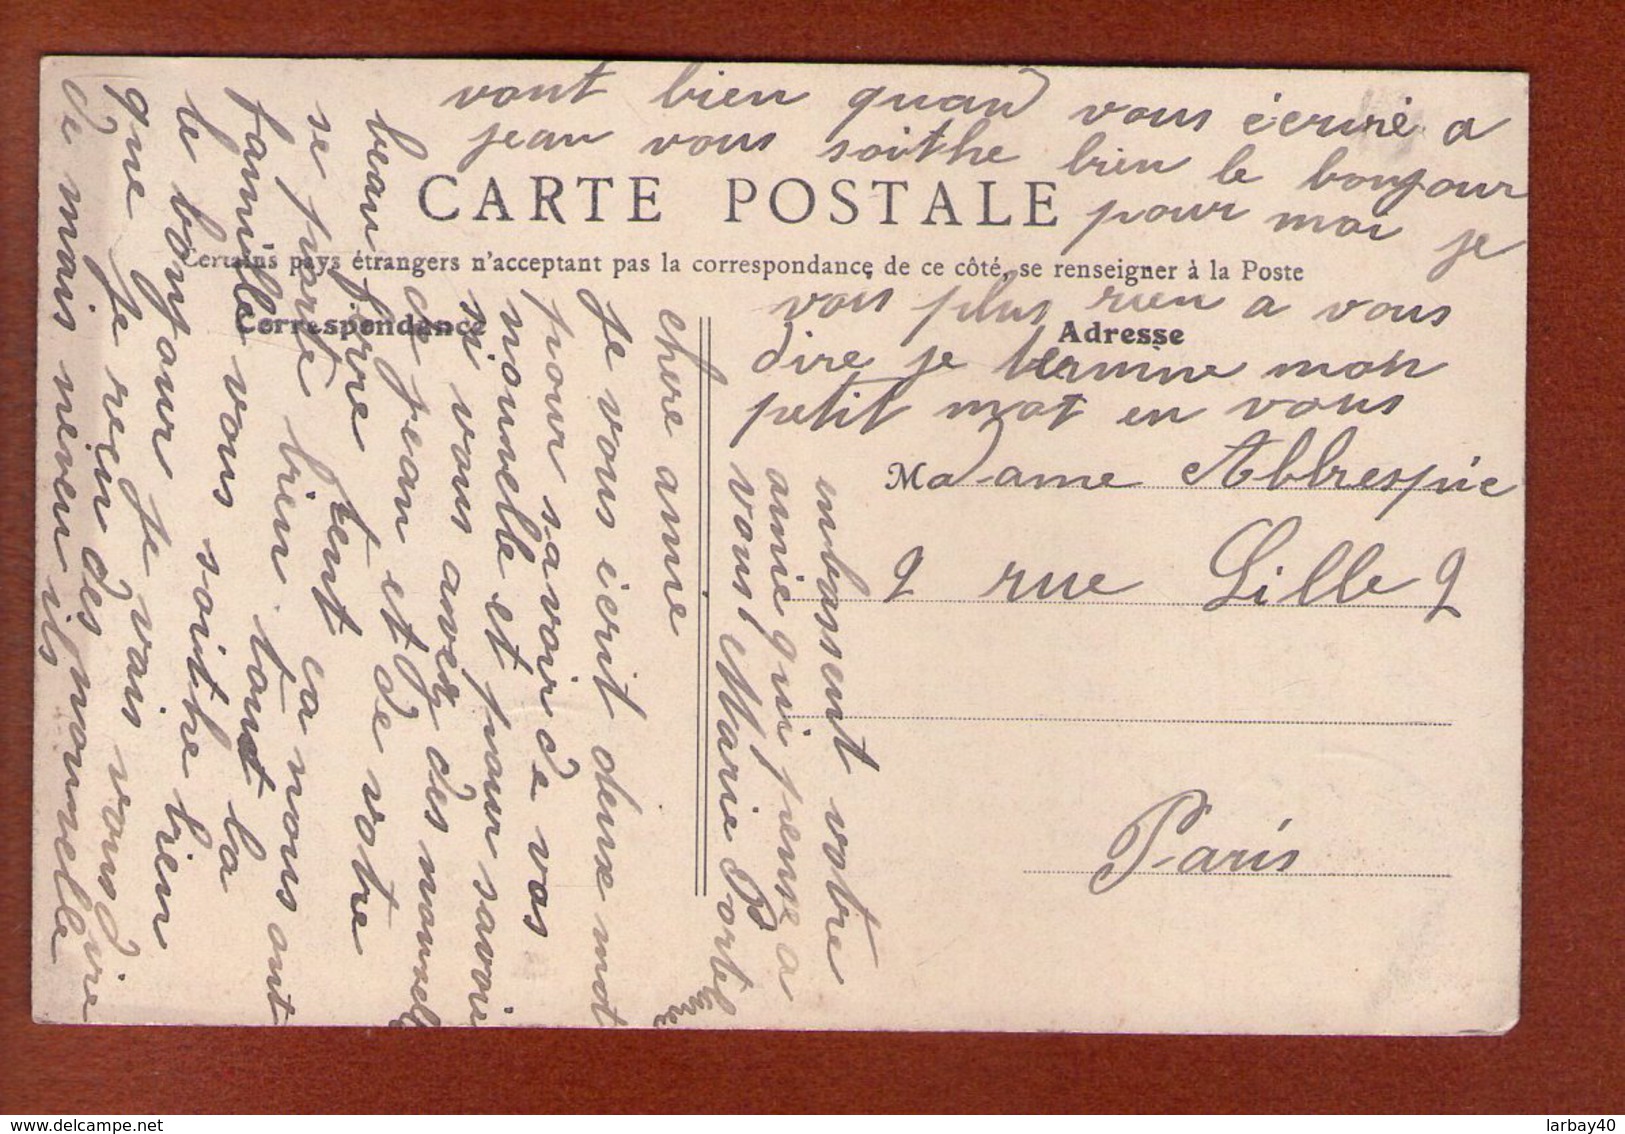 CARTE POSTALE
Certains pays étrangers n'acceptant pas la correspondance de ce côté, se renseigner à la Poste
Correspondance
Adresse
chere amie
Je vous ècrit deux mot
pour savoir de vos
nouvelle et pour savoir
si vous avez des nouvelle
a jean et de votre
beau frere tent
se porte bien ca nous ont
famille vous tout la
le bonjour soithe bien
que je rein des vous dire
de mais neveu ils nouvelle
vont bien quand vous ècrirè a
jean vous soithe bien le bonjour
pour moi je
vois plus rien a vous
dire je termine mon
petit mot en vous
embassent votre
amie qui pense a
vous Marie
Madame Abbrespie
9 rue Lille 9
Paris
larbay40
www.delcampe.net